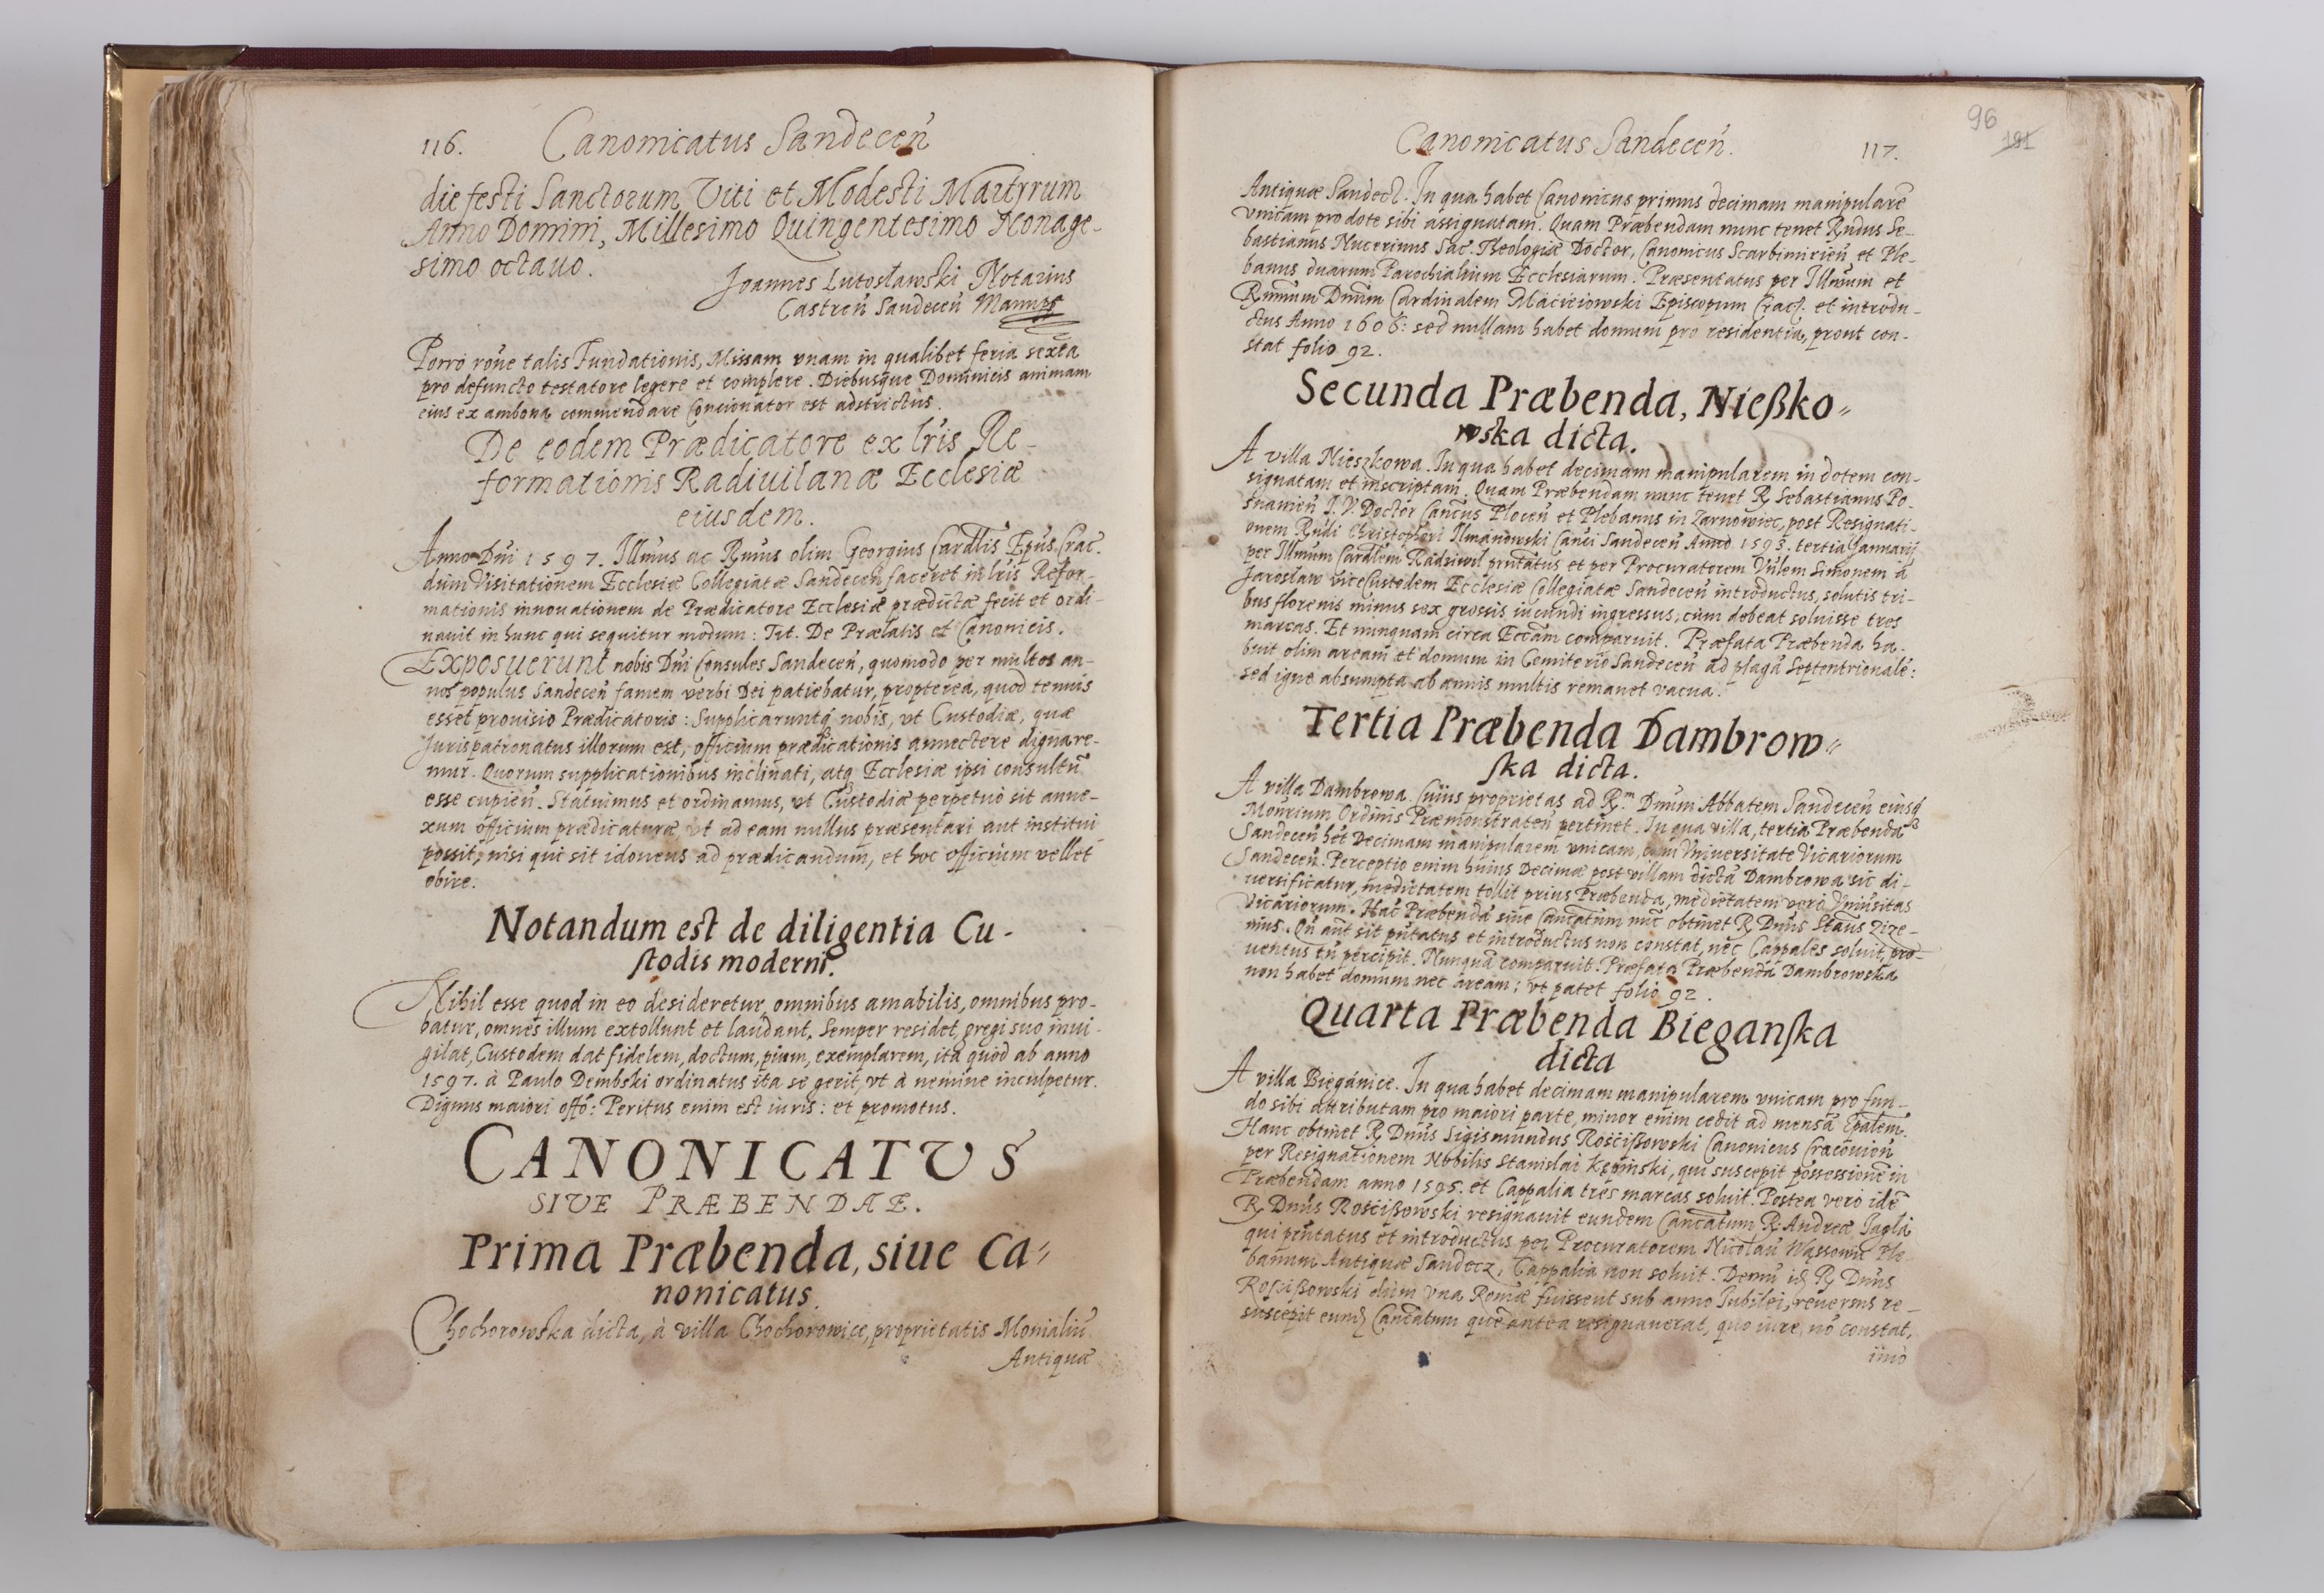 116. Canonicatus Sandeceń
die festi Sanctorum Viti et Modesti Martyrum
Anno Domini, Millesimo Quingentesimo Nonage-
simo octauo.
Joannes Lutosławski Notarius
Castreń Sandeceń Manupr
Porrò rõne talis Fundationis, Missam vnam in qualibet feria sexta
pro defuncto testatore legere et complere. Diebusque Dominicis animam
eius ex ambona commendare Concionator est adstrictus.
De eodem Prædicatore ex lris Re-
formationis Radiuilanæ Ecclesiæ
eiusdem.
Anno Dñi 1597. Illmus ac Rmus olim Georgius Cardlis Epus. Crac.
dum Visitationem Ecclesiæ Collegiatæ Sandeceń faceret in lris Refor-
mationis innouationem de Prædicatore Ecclesiæ prædictæ fecit et ordi-
nauit in hunc qui sequitur modum: Tit. De Prælatis et Canonicis.
Exposuerunt nobis Dñi Consules Sandeceń, quomodo per multos an-
nos populus Sandeceń famem verbi Dei patiebatur, propterea, quod tenuis
esset prouisio Prædicatoris: Supplicaruntq́ nobis, vt Custodiæ, quæ
Jurispatronatus illorum est, officium prædicationis annectere dignare-
mur. Quorum supplicationibus inclinati, atq Ecclesiæ ipsi consultũ
esse cupień. Statuimus et ordinamus, vt Custodiæ perpetuò sit anne-
xum officium prædicaturæ, vt ad eam nullus præsentari aut institui
possit, nisi qui sit idoneus ad prædicandum, et hoc officium vellet
obire.
Notandum est de diligentia Cu-
stodis moderni.
Nihil esse quod in eo desideretur, omnibus amabilis, omnibus pro-
batur, omnes illum extollunt et laudant. Semper residet, gregi suo inui-
gilat, Custodem dat fidelem, doctum, pium, exemplarem, ita quòd ab anno
1597. à Paulo Dembski ordinatus ita se gerit, vt à nemine inculpetur.
Dignus maiori offõ: Peritus enim est iuris: et promotus.
CANONICATVS
SIVE PRÆBENDAE.
Prima Præbenda, siue Ca=
nonicatus.
Chochorowska dicta, à villa Chochorowice, proprietatis Monialiũ
Antiquæ
96
181
Canonicatus Sandeceń. 117.
Antiquæ Sandecz. In qua habet Canonicus primus decimam manipularẽ
vnicam pro dote sibi assignatam. Quam Præbendam nunc tenet Rñdus Se-
bastianus Nucerinus Sac. Theologiæ Doctor, Canonicus Scarbimirień, et Ple-
banus duarum Parochialium Ecclesiarum. Præsentatus per Illmum et
Rmmum Dnum Cardinalem Macieiowski Episcopum Crac. et introdu-
ctus Anno 1606: sed nullam habet domum pro residentia, prout con-
stat folio 92.
Secunda Præbenda, Nießko=
wska dicta.
A villa Nieszkowa. In qua habet decimam manipularem in dotem con-
signatam et inscriptam. Quam Præbendam nunc tenet R. Sebastianus Po-
snanień J. V. Doctor Cancus Płoceń et Plebanus in Żarnowiec, post Resignati-
onem Rñdi Christophori Ilmanowski Canci Sandeceń Anno 1593. tertia Januarij
per Illmum Cardlem Radziwil prñtatus et per Procuratorem Vñlem Simonem à
Jarosław viceCustodem Ecclesiæ Collegiatæ Sandeceń introductus, solutis tri-
bus florenis minus sex grossis iucundi ingressus, cùm debeat soluisse tres
marcas. Et nunquam circa Eccãm comparuit. Præfata Præbenda ha-
buit olim aream et domum in Cemiterio Sandeceń ad plagã Septentrionalẽ:
sed igne absumpta ab annis multis remanet vacua.
Tertia Præbenda Dambrow=
ska dicta.
A villa Dambrowa. Cuius proprietas ad R.m Dnum Abbatem Sandeceń eiusq́
Monrium Ordinis Præmonstrateń pertinet. In qua villa, tertia Præbenda
Sandeceń hẽt Decimam manipularem vnicam, cum Vniuersitate Vicariorum
Sandeceń. Perceptio enim huius Decimæ post villam dictã Dambrowa sic di-
uersificatur, medietatem tollit prius Præbenda, medietatem verò Vniusitas
Vicariorum. Hac Præbendã siue Cancatum nũc obtinet R. Dnus Staus Zize-
nius. Qñ aũt sit pñtatus et introductus non constat, nec Cappales soluit, pro-
uentus tñ percipit. Nunquã comparuit. Præfata Præbenda Dambrowska
non habet domum nec aream: vt patet folio 92.
Quarta Præbenda Bieganska
dicta
A villa Biegánice. In qua habet decimam manipularem vnicam pro fun-
do sibi attributam pro maiori parte, minor enim cedit ad mensã Epalem.
Hanc obtinet R. Dnus Sigismundus Rosćißowski Canonicus Cracouień
per Resignationem Nobilis Stanislai Kępinski, qui suscepit possessionẽ in
Præbendam anno 1595. et Cappalia tres marcas soluit. Postea verò idẽ
R. Dnus Rosćißowski resignauit eundem Cancatum R. Andreæ Jagla
qui prñtatus et introductus per Procuratorem Nicolaũ Wąssowic Ple-
banum Antiquæ Sandecz, Cappalia non soluit. Demũ id R. Dnus
Rosćißowski dum vna Romæ fuissent sub anno Jubilei, reuersus re-
suscepit eund Cancatum quẽ antea resignauerat, quo iure, nõ constat,
imò